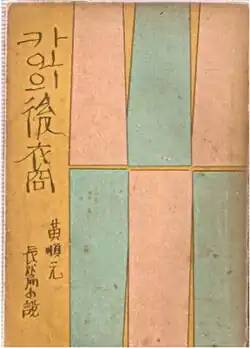 카인의 後裔
黃順元
長篇小說